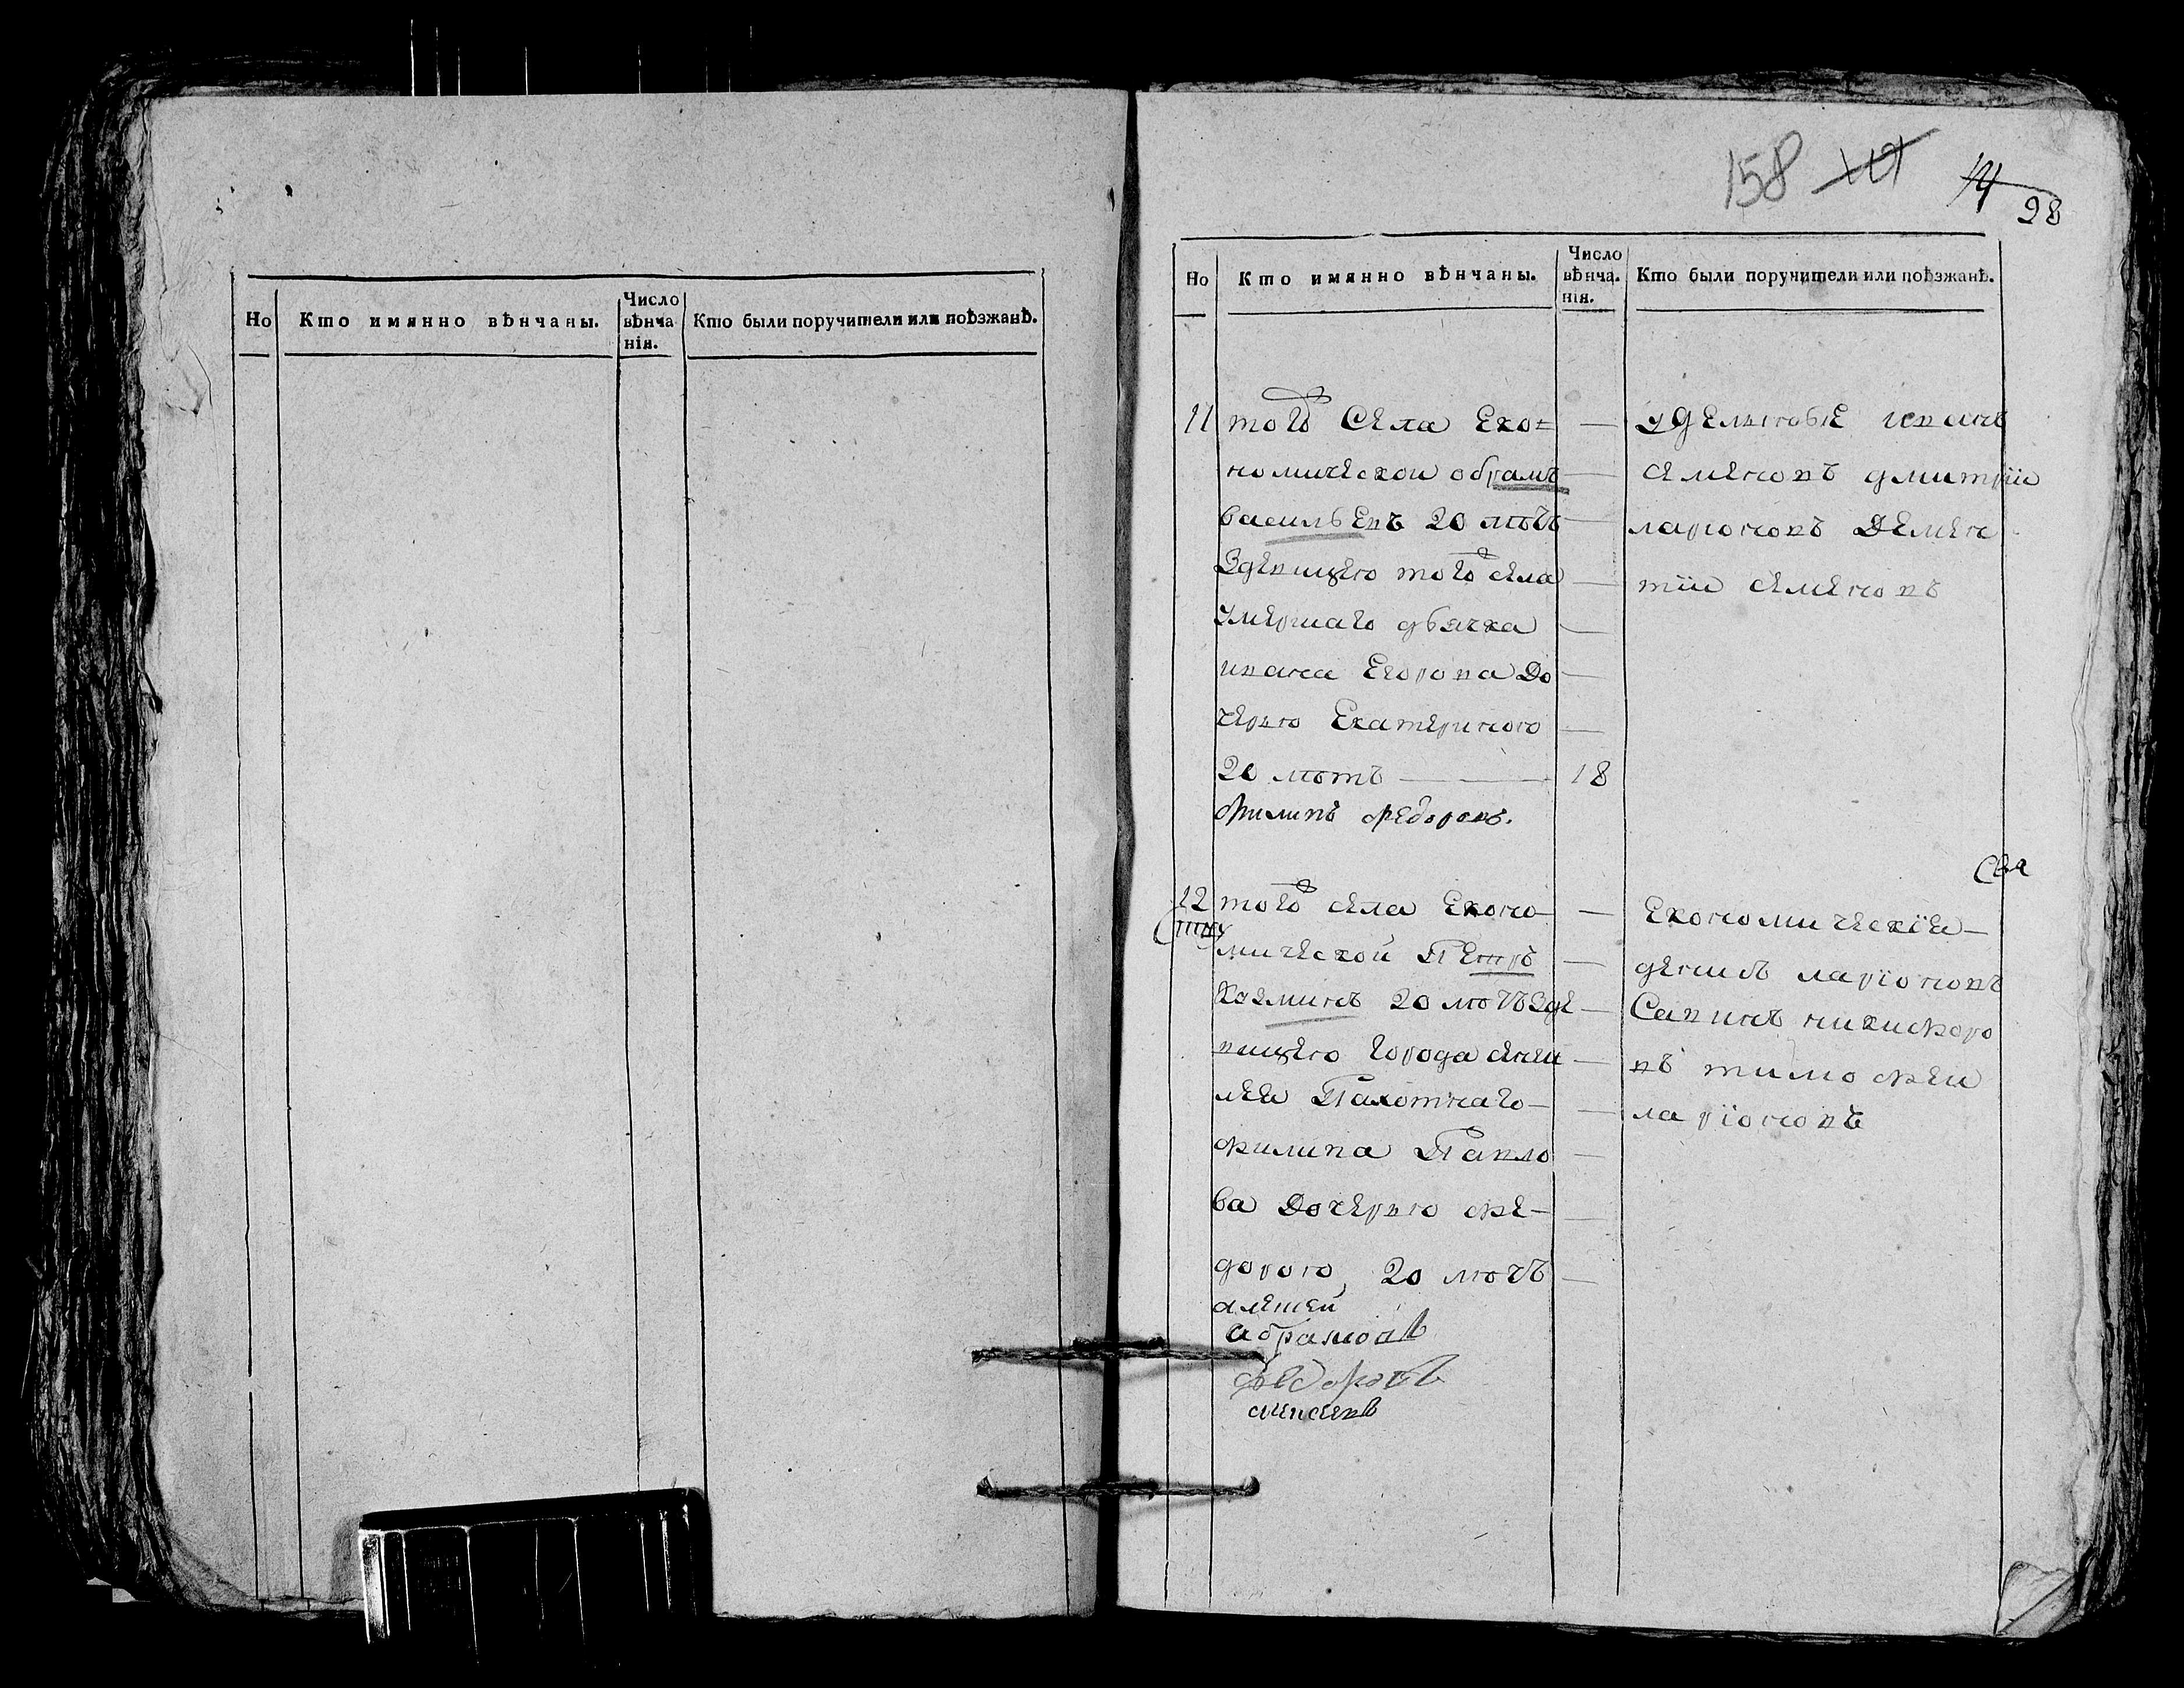 Но
Кто имянно вѣнчаны.
Число
вѣнча
нія.
Кто были поручители или поѣзжанѣ.
158
28
Но
Кто имянно вѣнчаны.
Число
вѣнча.
нія.
Кто были поручители или поѣзжанѣ.
11 тогож Села Еко=
номической обрамъ
васильевъ 20 лѣтъ
Здѣвицею тогож села
умершаго дьячка
ивана Егорова До
черью Екатериною
20 лѣтъ 18
филипъ федоровъ.
удельные иванъ
семеновъ дмитрїи
ларионовъ Демен
тїи семеновъ
12 тогож села Еконо
мической Петръ
Козминъ 20 лѣтъ Здѣ
вицею города
Пахотнаго
филипа Павло
ва Дочерью фе-
дорою 20 лѣтъ
абрамовъ
федоровъ
Економическїе
денисъ ларїоновъ
Савинъ никифоро
въ тимофеи
ларїоновъ